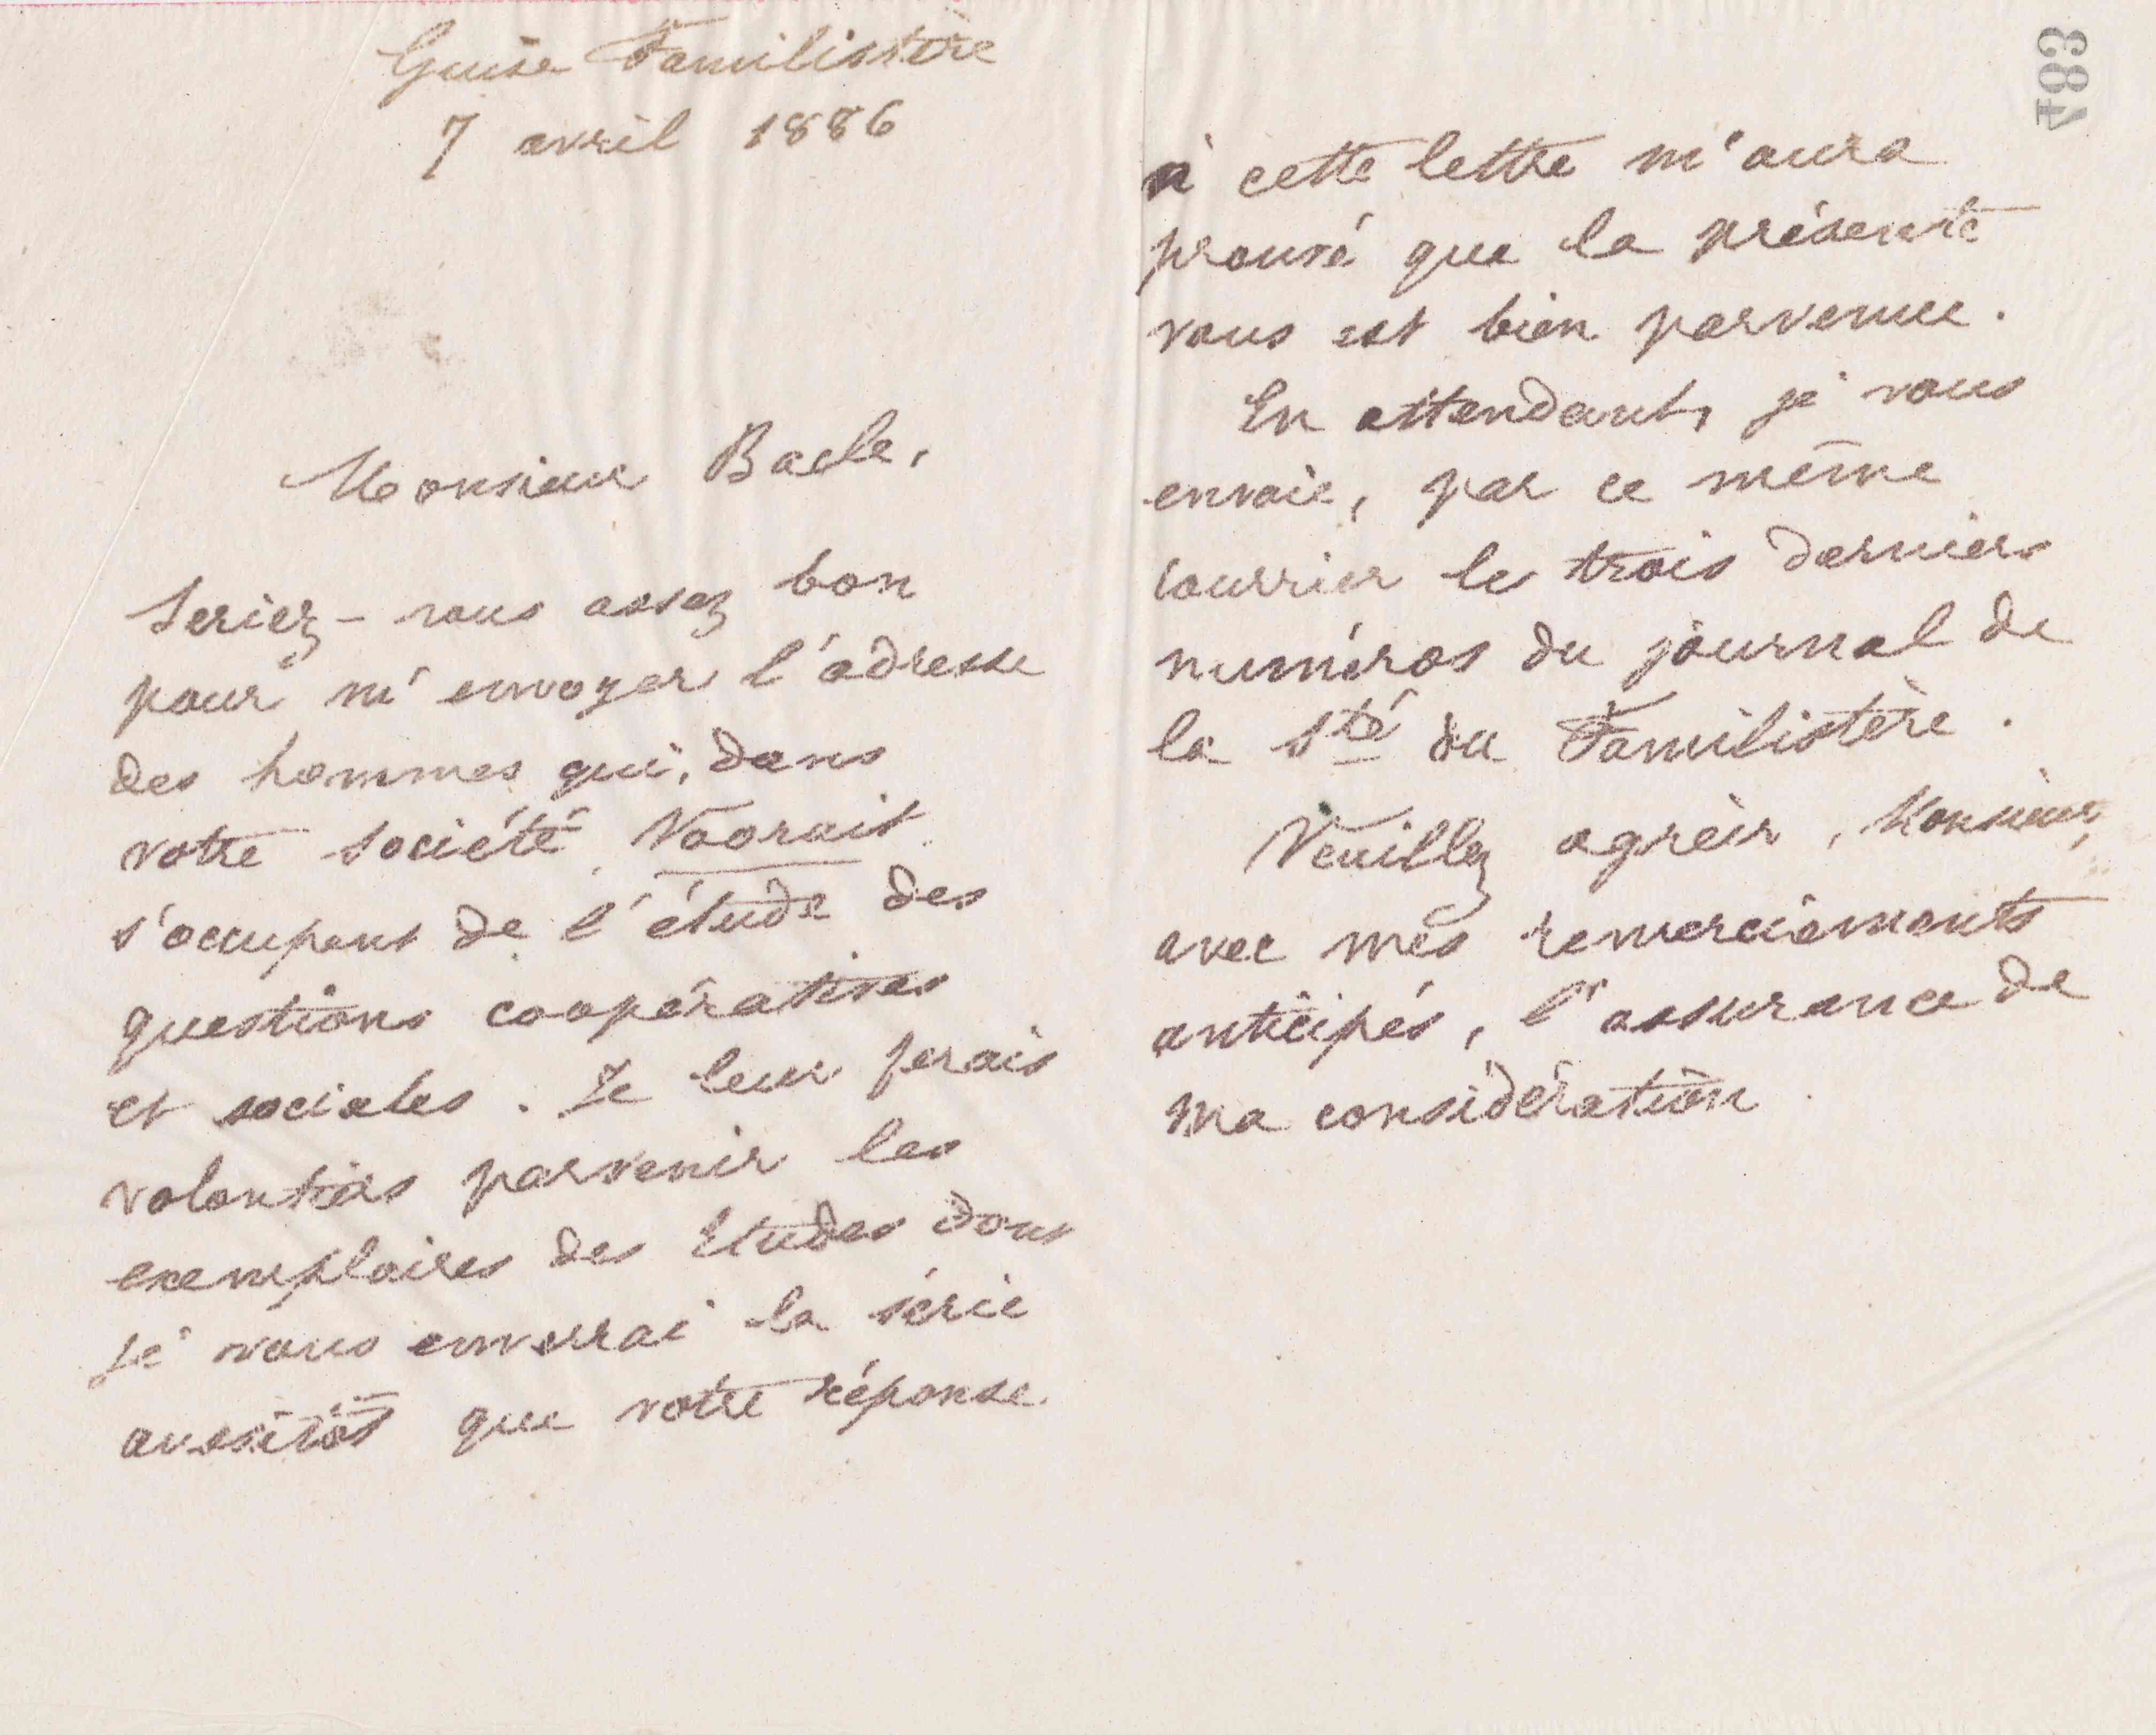 Guise Familistère
7 avril 1886
Monsieur Bacle,
Seriez-vous assez bon
pour m'envoyer l'adresse
des hommes qui, dans
votre société Vooruit
s'occupent de l'étude des
questions coopératives
et sociales. Je leur ferais
volontiers parvenir les
exemplaires des Etudes dont
je vous enverrai la série
aussitôt que votre réponse
483
à cette lettre m'aura
prouvé que la présente
vous est bien parvenue.
En attendant, je vous
envoie, par ce même
courrier le trois derniers
numéros du journal de
la Sté du Familistère.
Veuillez agréer, Monsieur,
avec mes remerciements
anticipés, l'assurance de
ma considération.